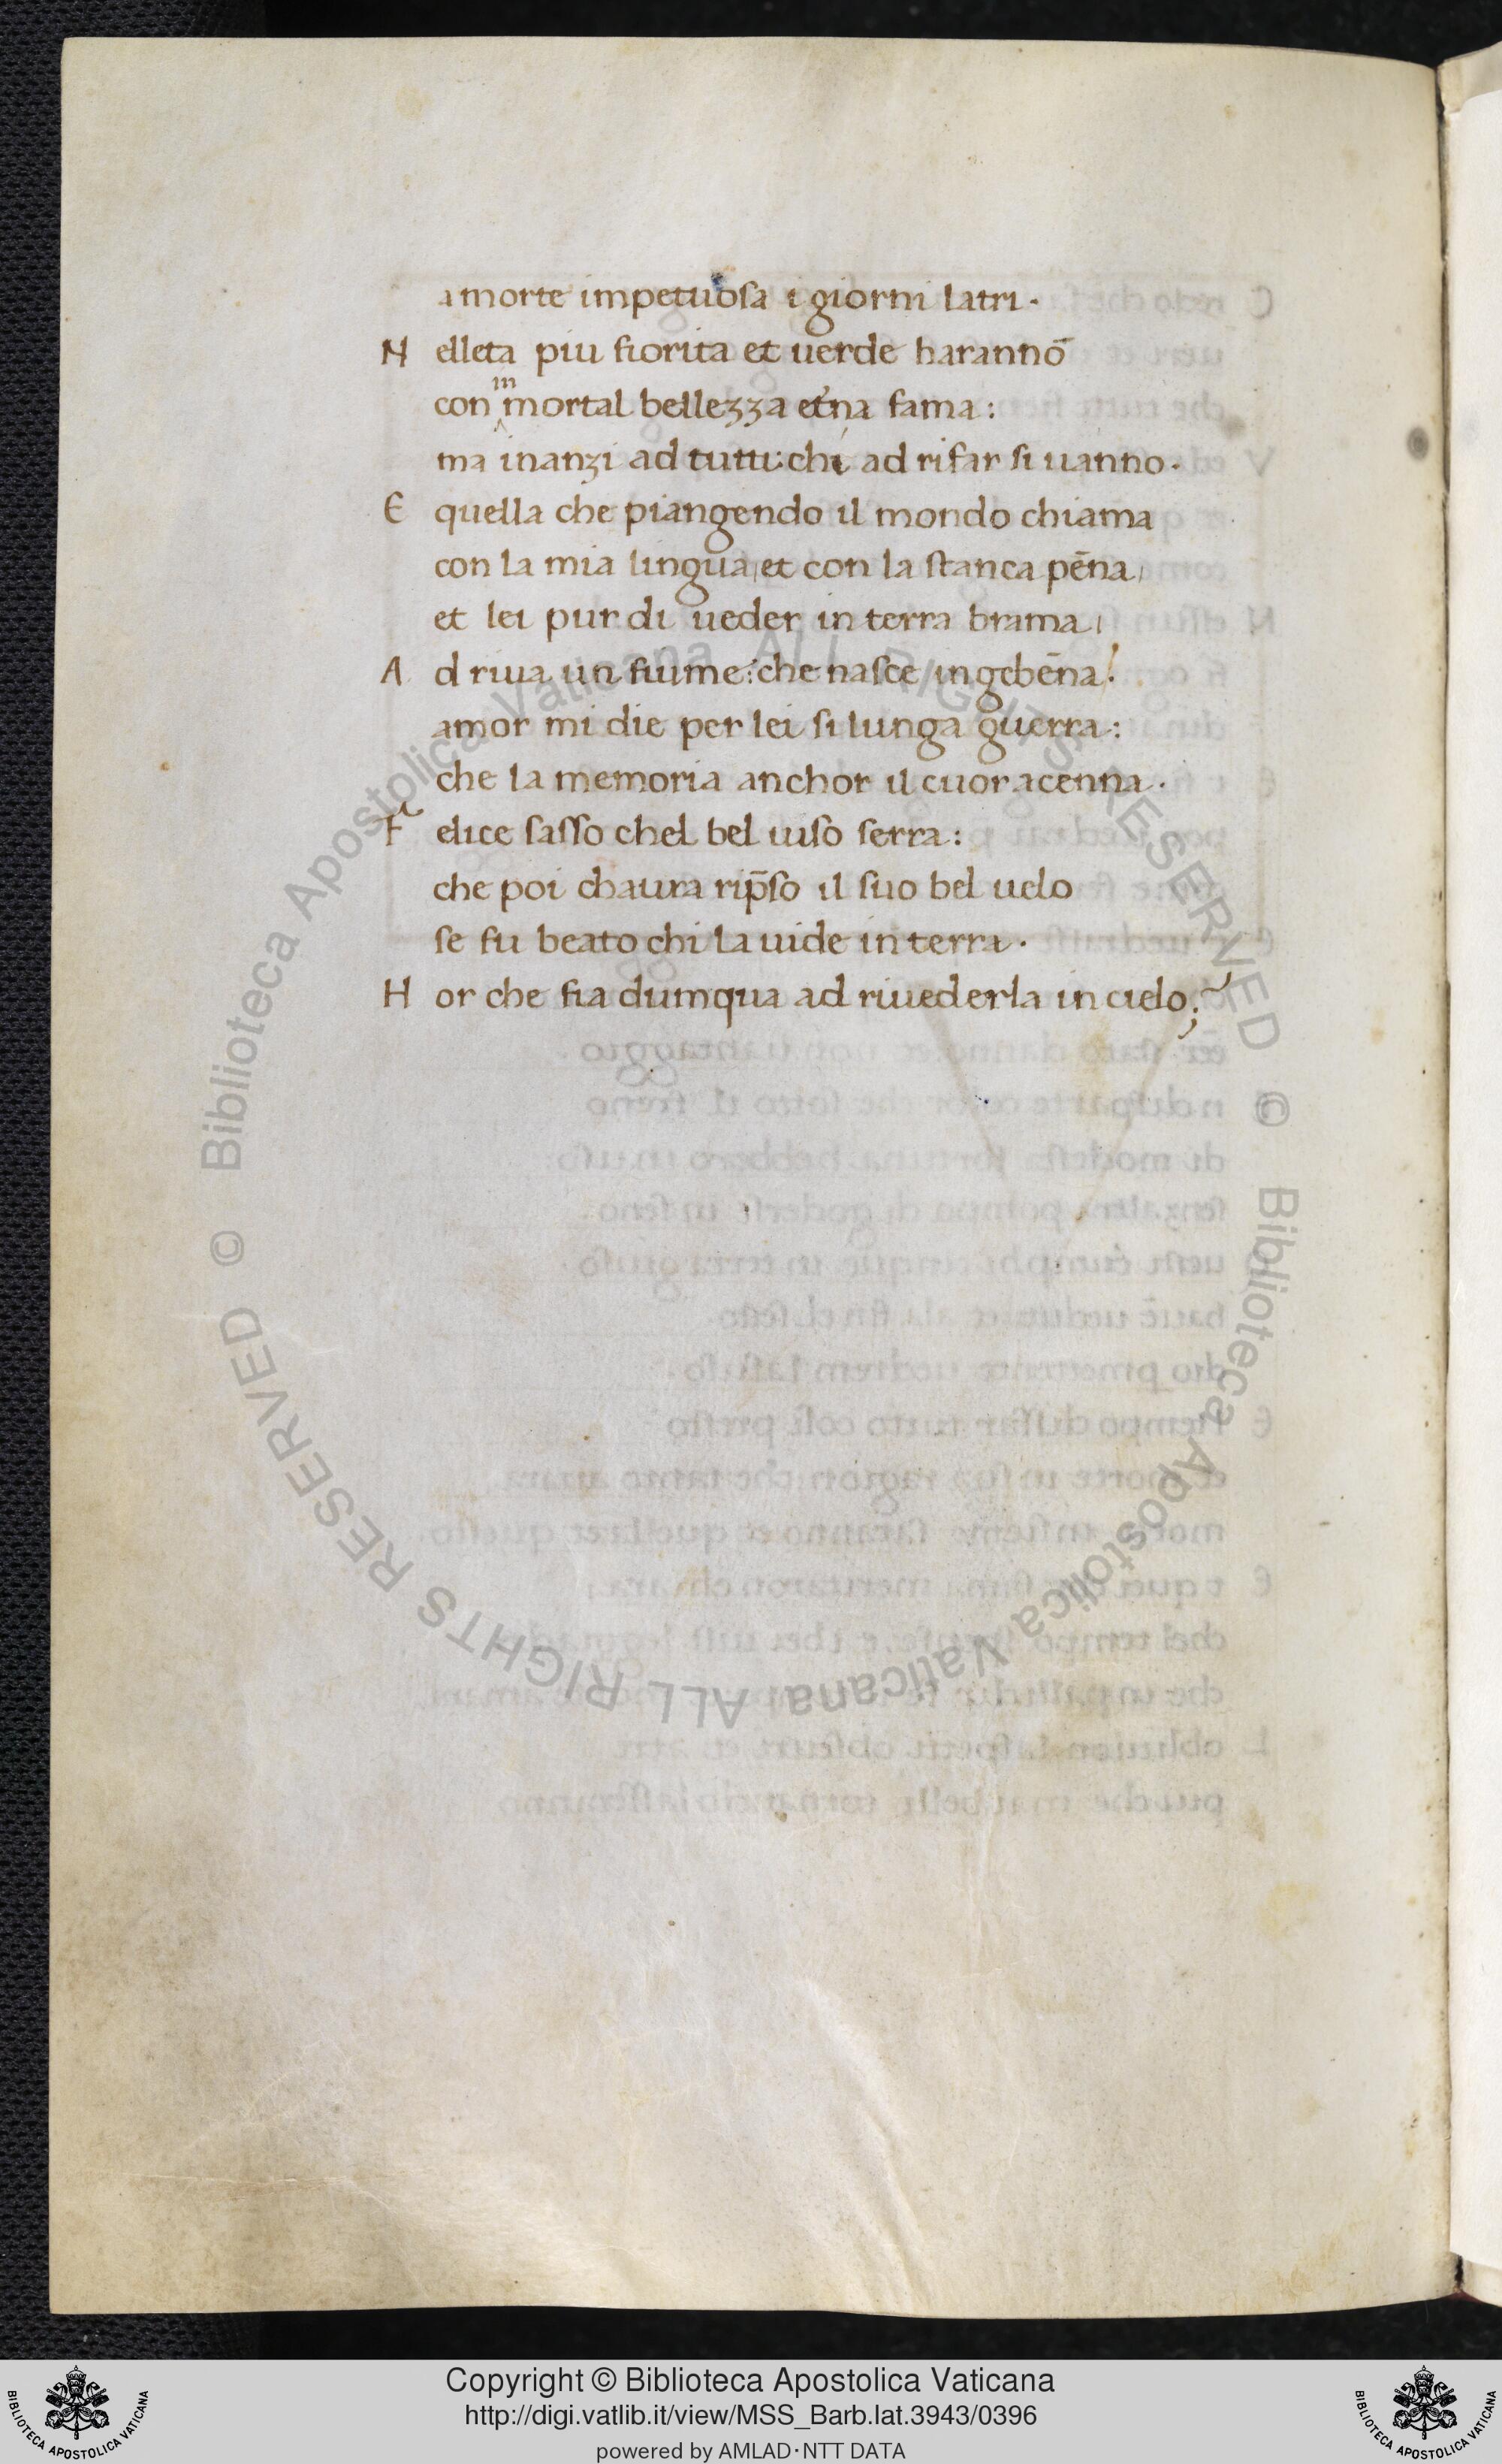 amorte impetuosa i giorni latri.
N elleta piu fiorita et uerde harannō
con im mortal bellezza et̓na fama:
ma inanzi ad tutti: chi ad rifar si uanno.
E quella che piangendo il mondo chiama
con la mia lingua, et con la stanca pēna,
et lei pur di ueder in terra brama,
A d riua un fiume: che nasce in gebēna.
amor mi die per lei si lunga guerra:
che la memoria anchor il cuor acenna.
F elice sasso chel bel uiso serra:
che poi chaura rip̄so il suo bel uelo
se fu beato chi la uide in terra.
H or che fia dumqua ad riuederla in cielo;
Copyright © Biblioteca Apostolica Vaticana
http://digi.vatlib.it/view/MSS_Barb.lat.3943/0396
powered by AMLAD·NTT DATA
BIBLIOTECA APOSTOLICA VATICANA
BIBLIOTECA APOSTOLICA VATICANA
© Biblioteca Apostolica Vaticana ALL RIGHTS RESERVED
© Biblioteca Apostolica Vaticana ALL RIGHTS RESERVED